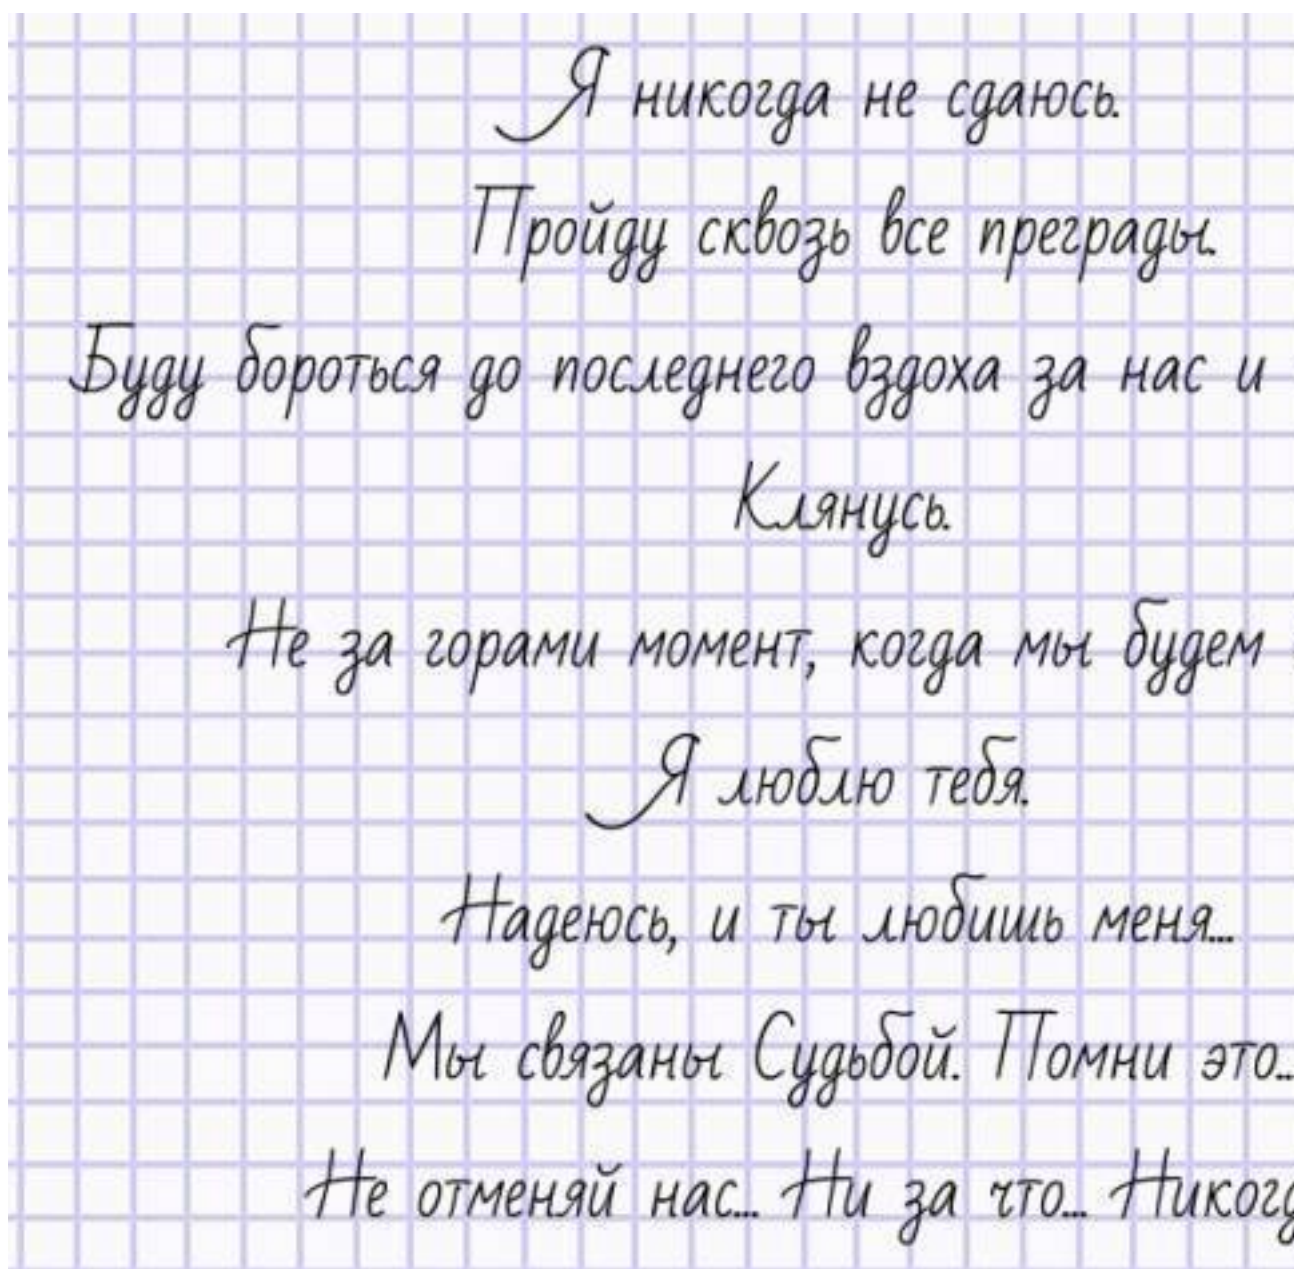 Я никогда не сдаюсь.
Пройду сквозь все преграды.
Буду бороться до последнего вздоха за нас и
Клянусь.
Не за горами момент, когда мы будем
Я люблю тебя.
Надеюсь, и ты любишь меня...
Мы связаны Судьбой. Помни это...
Не отменяй нас... Ни за что...